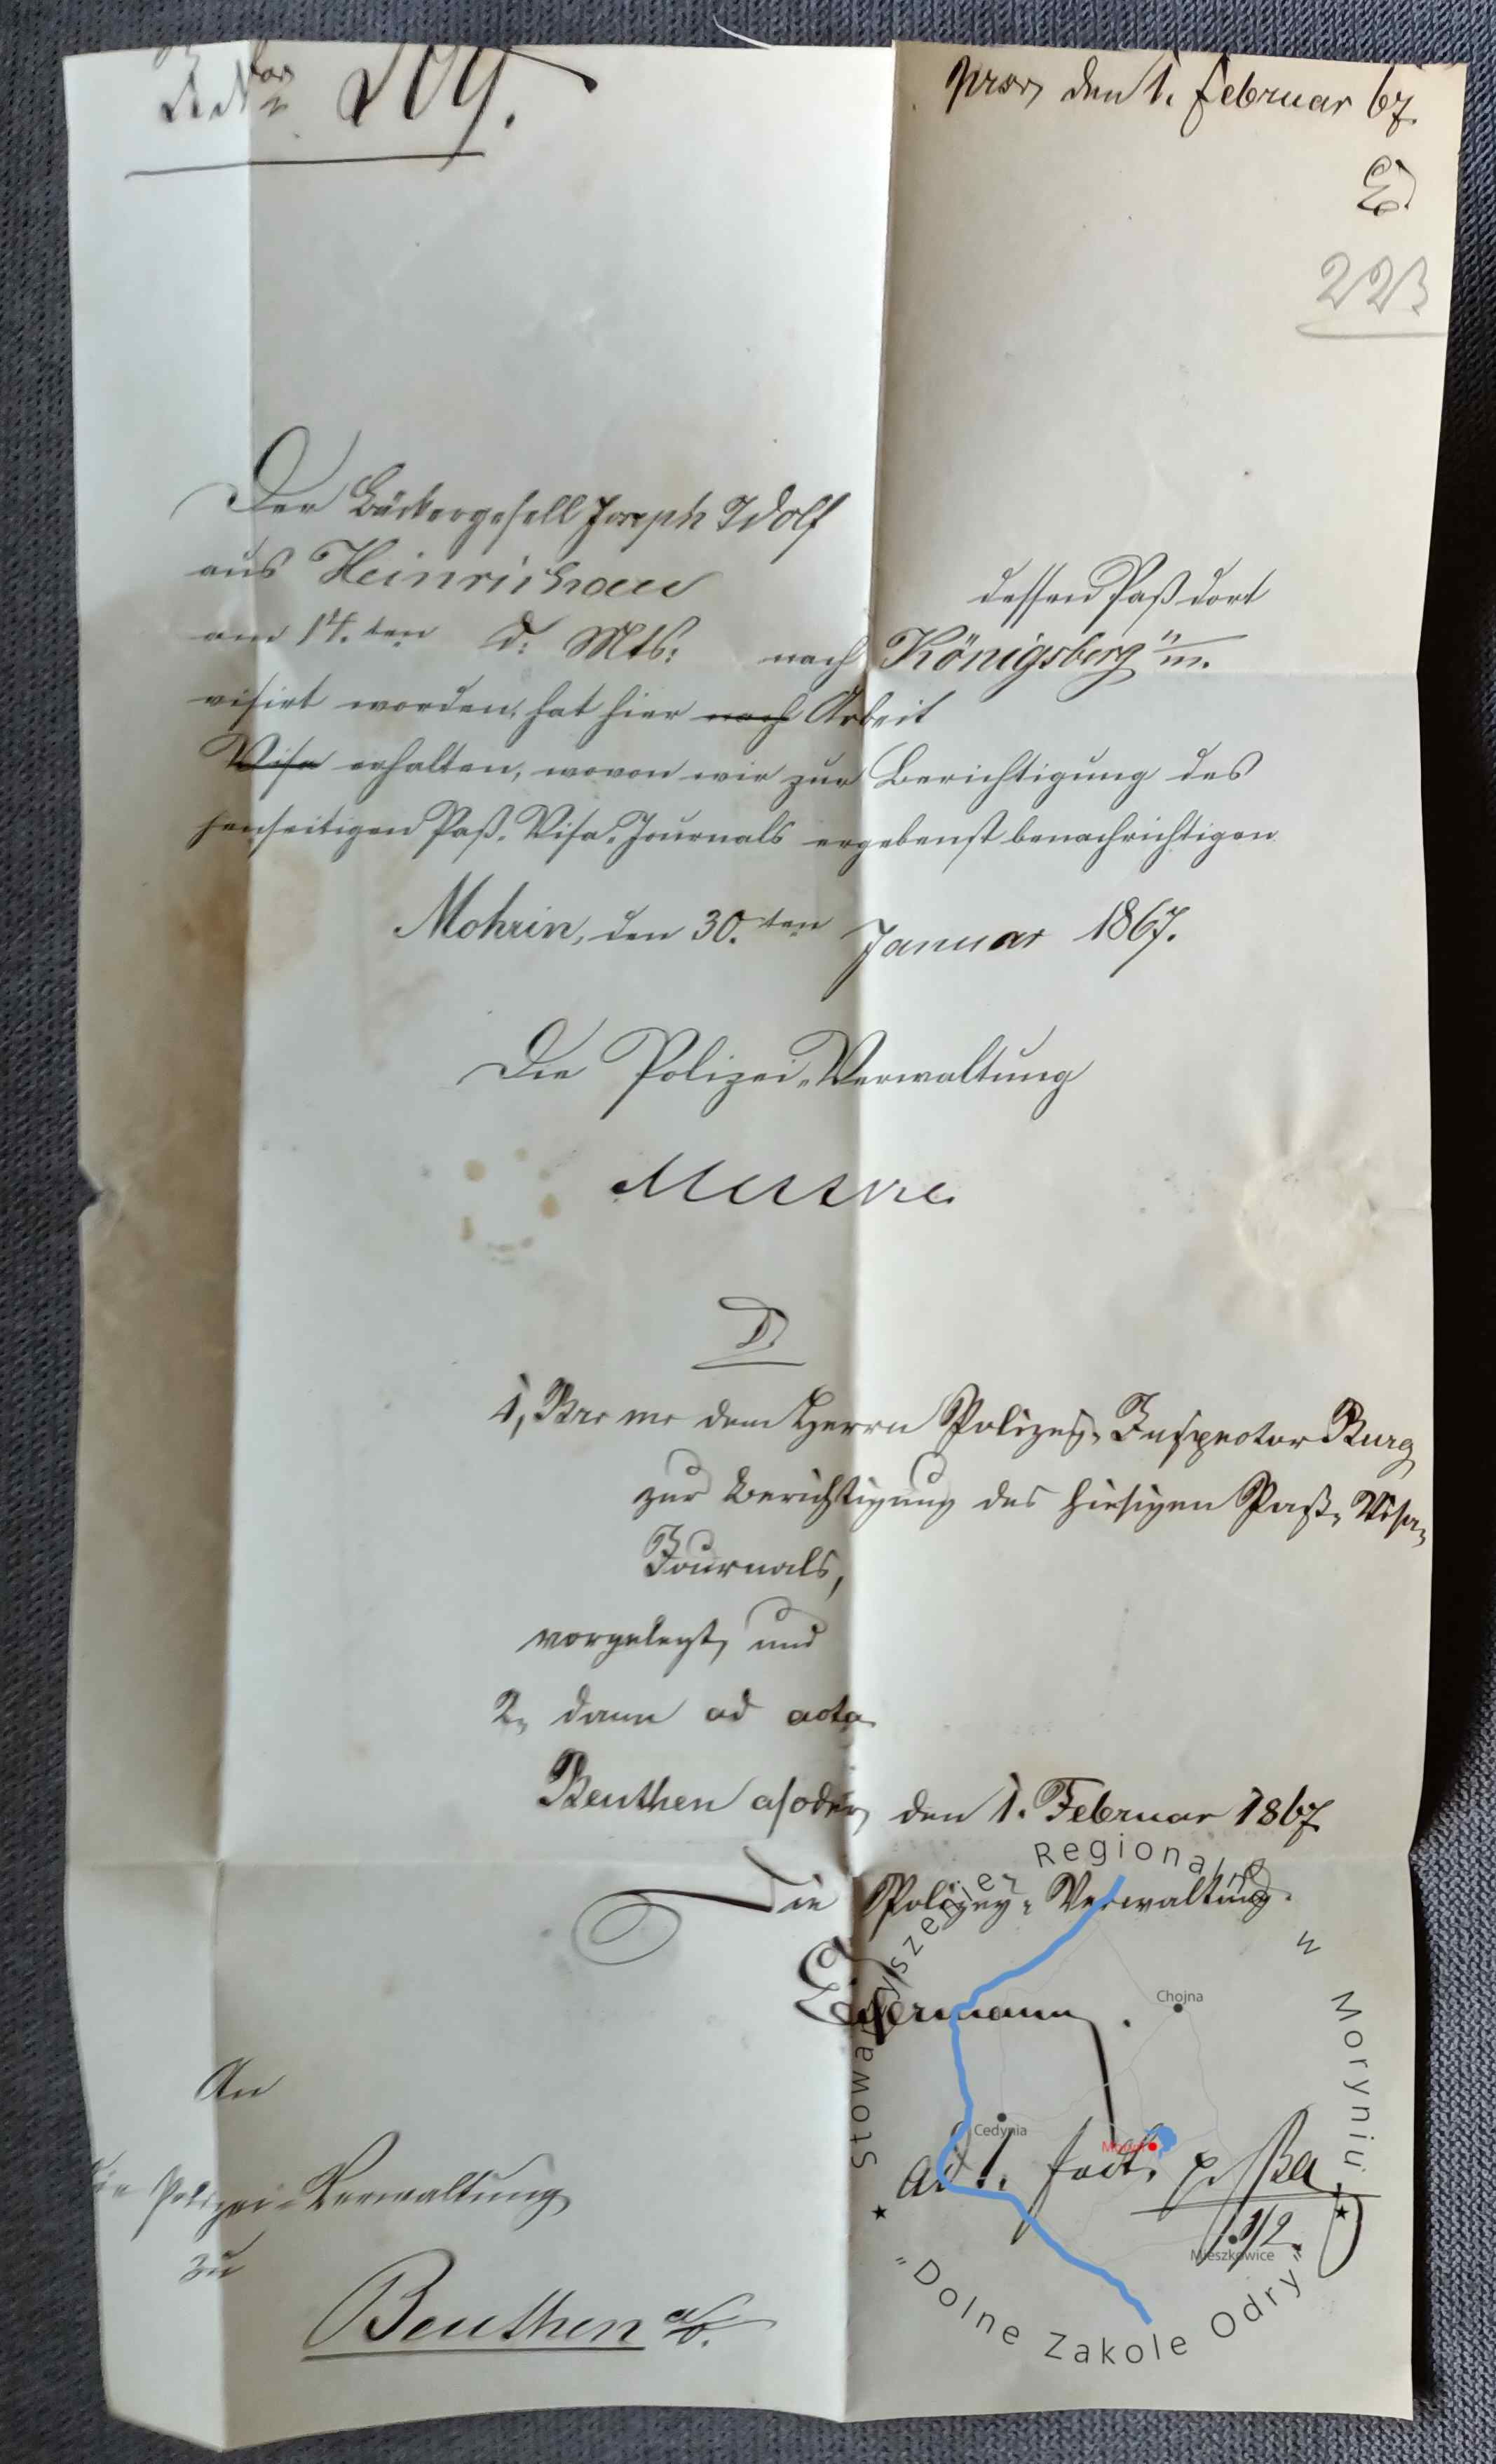 209.
den 1. Februar 67
223
Der Bäckergesell Joseph Adolf
aus Heinrichau
dessen Paß dort
am 14.ten d. Mts: nach Königsberg n/m.
visirt worden, hat hier nach Arbeit
Visa erhalten, wovon wir zur Berichtigung des
jenseitigen Paß-Visa-Journals ergebenst benachrichtigen
Mohrin, den 30.ten Januar 1867.
Die Polizei-Verwaltung
1, Br m dem Herrn Polizey-Inspector Burg
zur Berichtigung des hiesigen Paß-Visa-
Journals,
vorgelegt, und
2, dann ad acta
Beuthen a/oder, den 1. Februar 1867
Die Polizey-Verwaltung.
ad 1. fact.
1/2.
An
die Polizei-Verwaltung
zu
Beuthen a/o.
Stowarzyszenie Regionalne w Moryniu
Chojna
Cedynia
Moryń
Mieszkowice
"Dolne Zakole Odry"